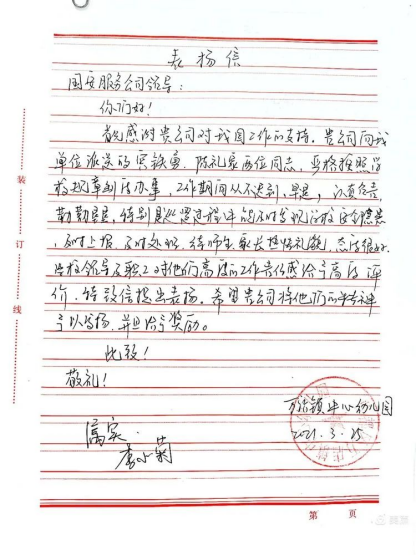 表扬信
国安服务公司领导：
你们好！
首先感谢贵公司对我园工作的支持。贵公司向我
单位派送的 陈礼泉两位同志，严格按照学
校规章制度办事，工作期间从不迟到、早退，认真负责，
勤勤恳恳，特别是巡逻过程中能及时发现学校安全隐患，
及时上报，及时处理，待师生家长热情礼貌，态度很好。
学校领导及职工对他们高度的工作责任感给予高度评
价，特致信提出表扬。希望贵公司将他们的 精神
予以发扬，并且给予奖励。
此致！
敬礼！
镇中心幼儿园
2021.3.25
属实。
李小菊
装
订
线
第 页